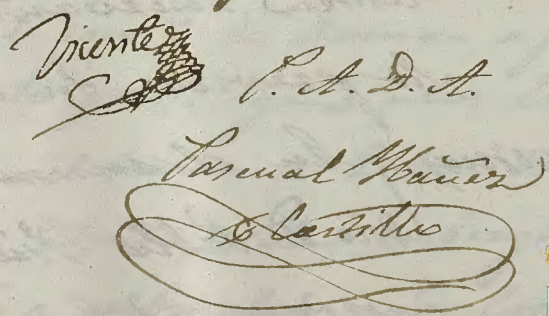 Vicente
P. A. D. A.
Pascual Ybañez
Castillo